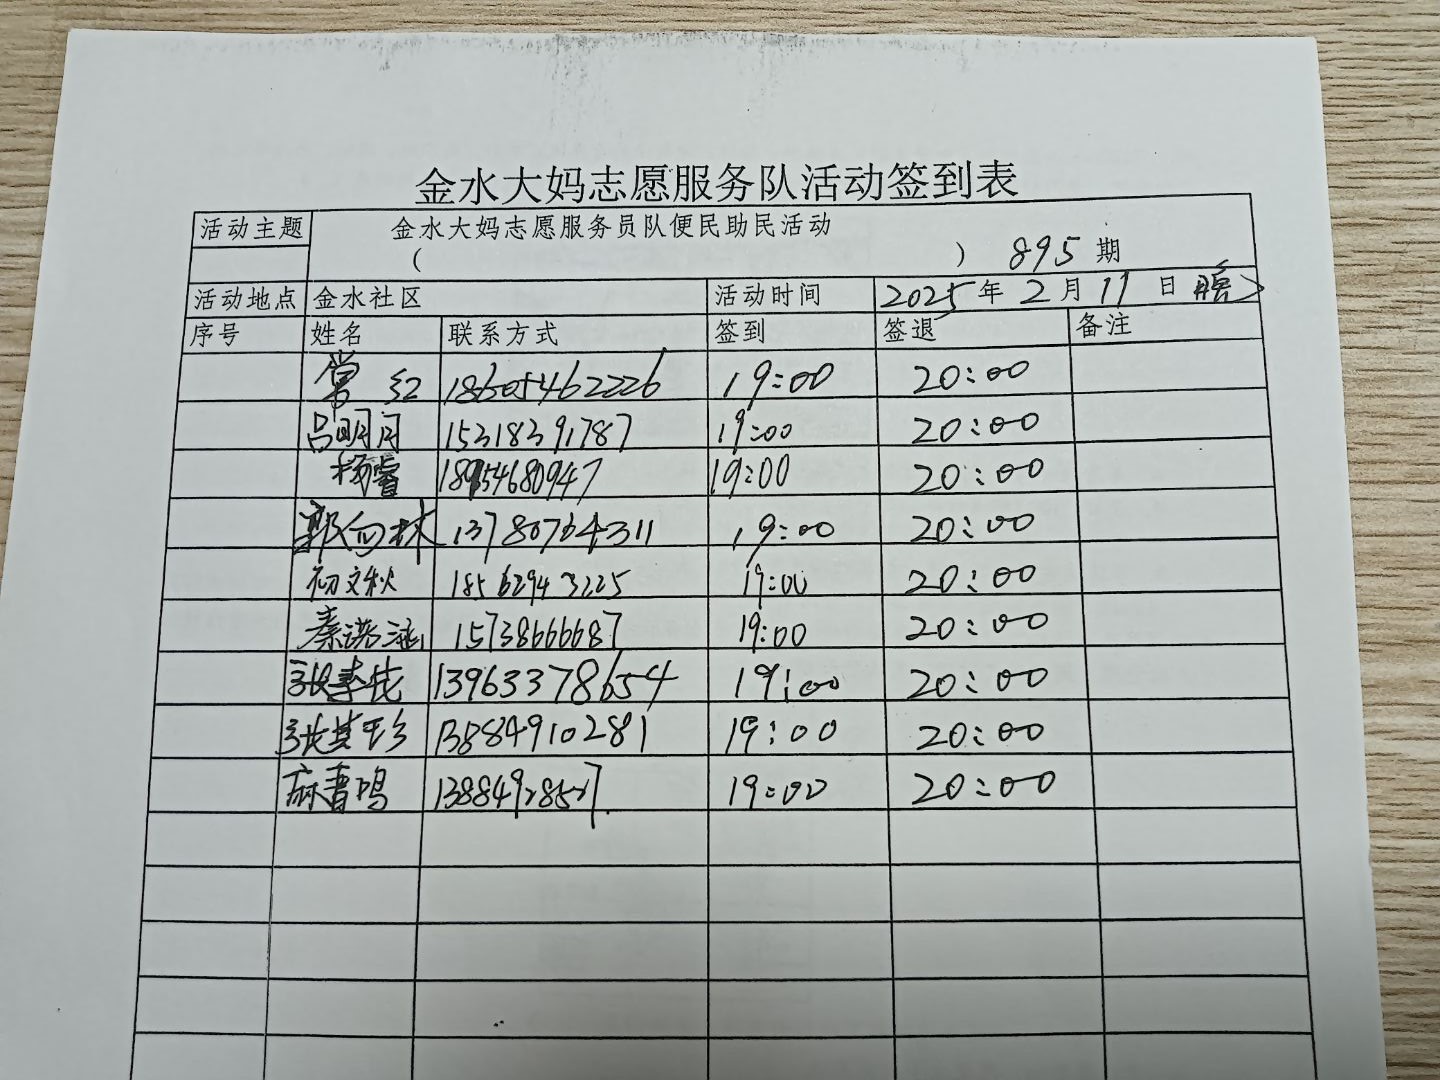 金水大妈志愿服务队活动签到表
活动主题 金水大妈志愿服务员队便民助民活动
( ) 895 期
活动地点 金水社区 活动时间 2025 年 2 月 11 日
序号 姓名 联系方式 签到 签退 备注
常红 18605462226 19:00 20:00
吕明月 15318391787 19:00 20:00
杨睿 18954680947 19:00 20:00
郭向林 13780764311 19:00 20:00
初文秋 18562943225 19:00 20:00
秦洪涵 15738666687 19:00 20:00
张春花 13963378654 19:00 20:00
张其珍 13884910281 19:00 20:00
麻曹鸣 19:00 20:00